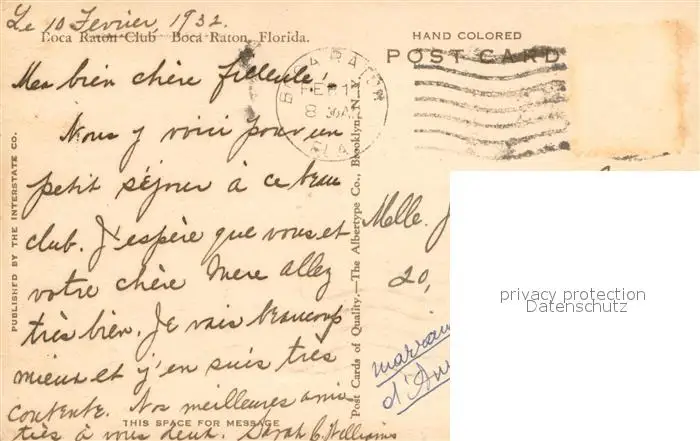 Le 10 Fevrier, 1932.
Boca Raton Club Boca Raton, Florida.
HAND COLORED
POST CARD
BOCA RATON
FEB 11
8 AM
FLA
Ma bien chère filleule!
Nous y voici pour un
petit séjour à ce beau
club. J'espère que vous et
votre chère Mere allez
très bien. Je vais beaucoup
mieux et j'en suis très
contente. Nos meilleures ami
tiés à vous deux. Sarah C. Williams
THIS SPACE FOR MESSAGE
PUBLISHED BY THE INTERSTATE CO.
Post Cards of Quality.—The Albertype Co., Brooklyn, N. Y.
Melle. J
20,
marrain
d'
privacy protection
Datenschutz